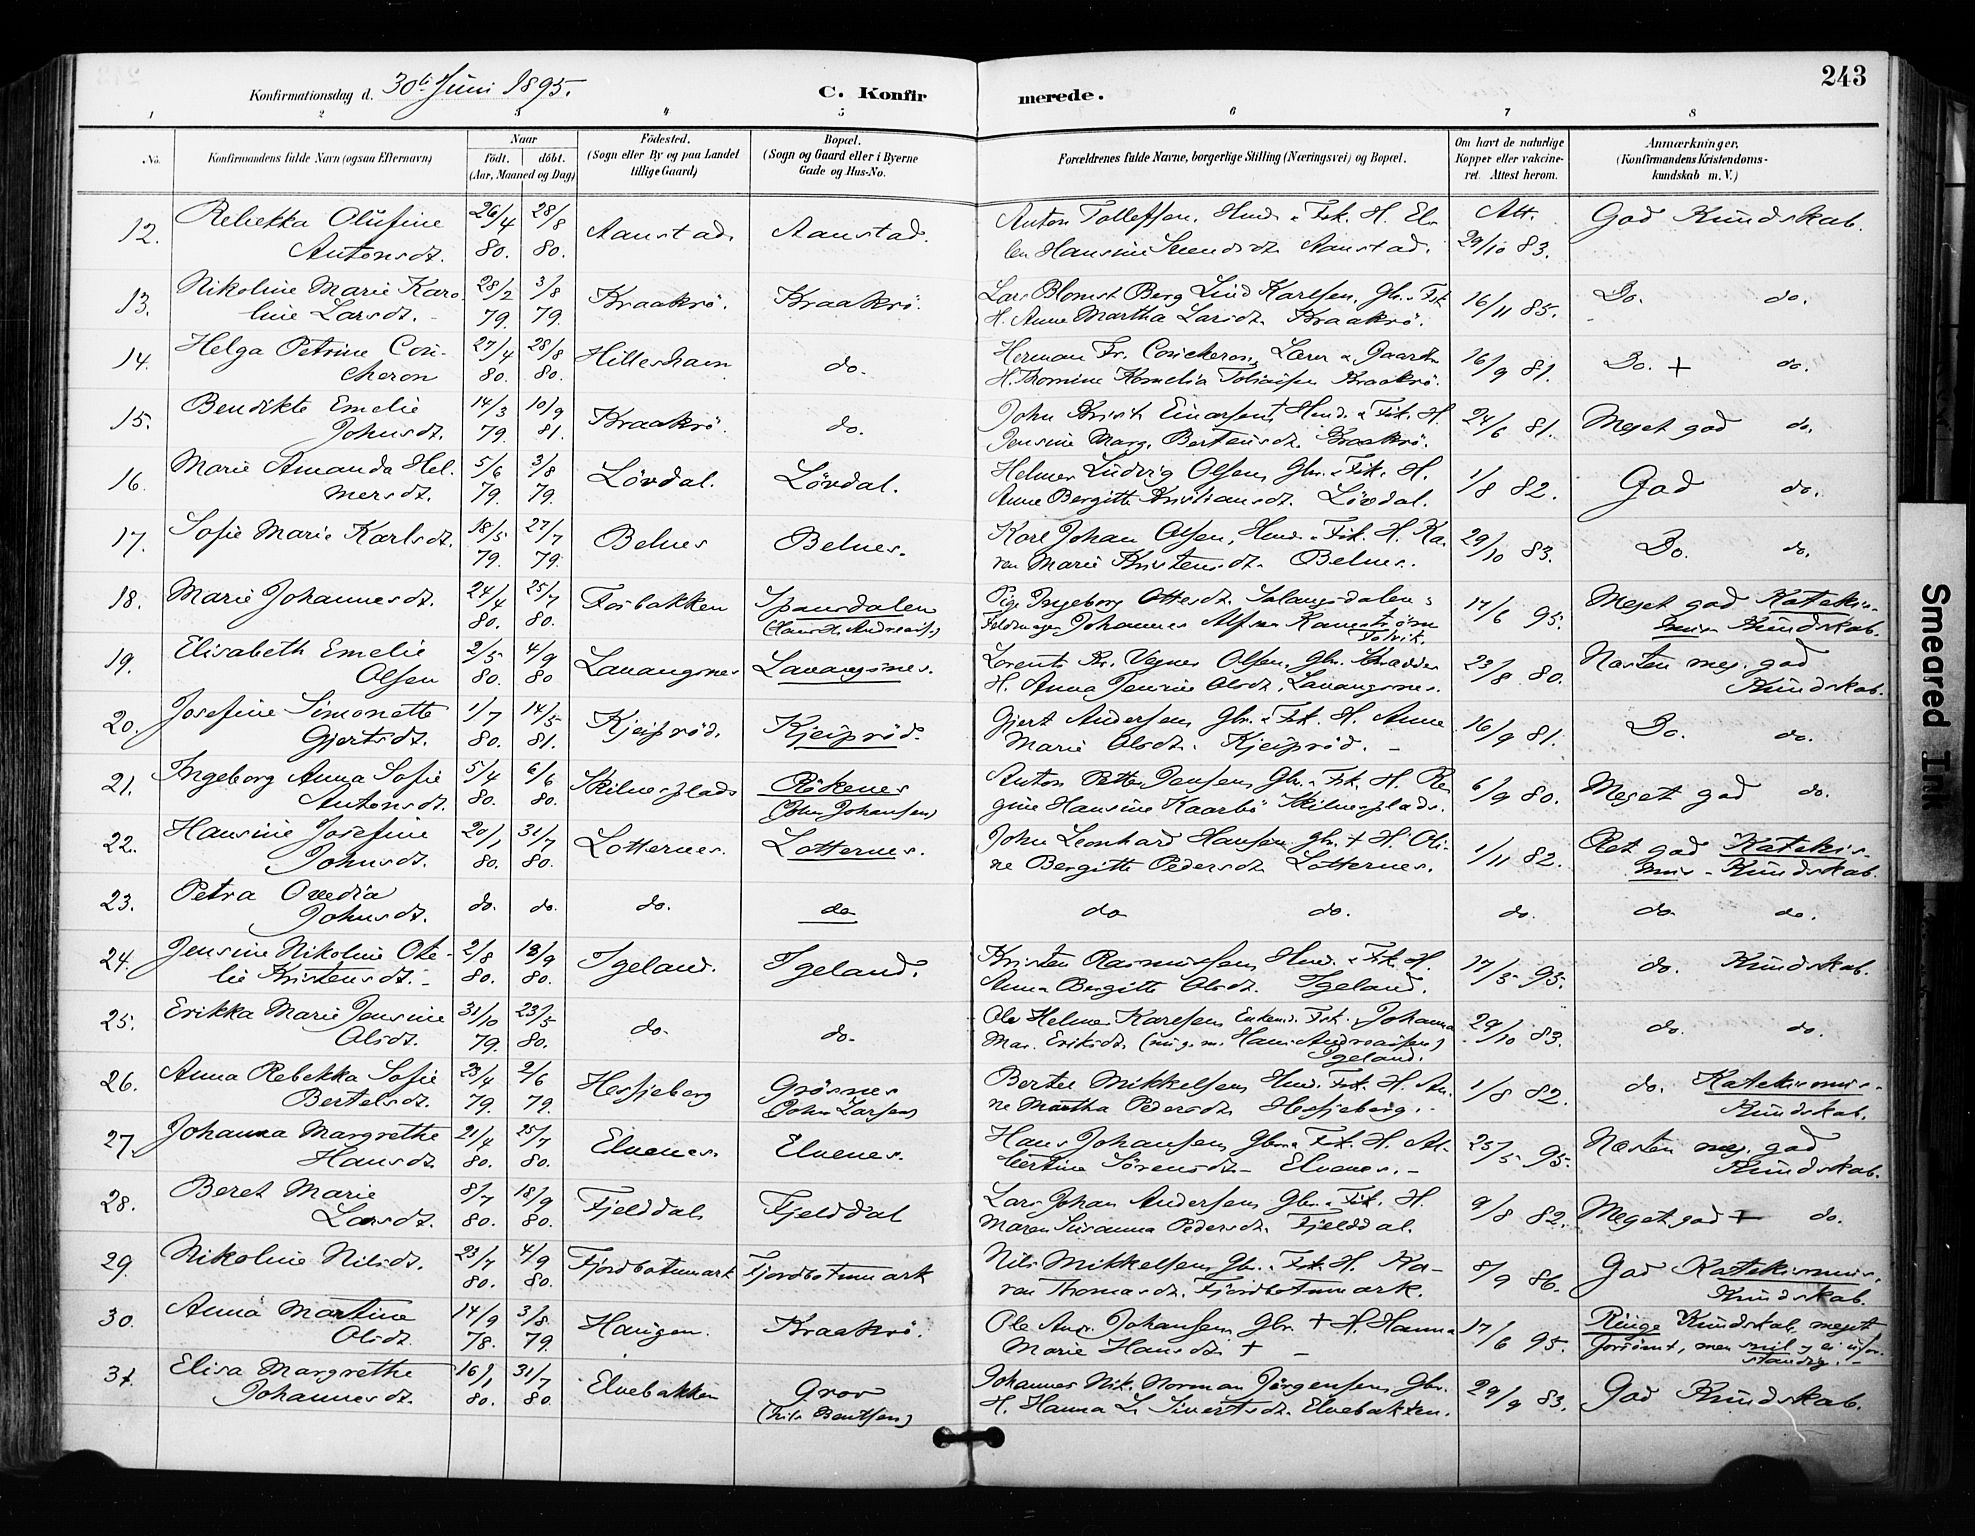 243
Konfirmationsdag d. 30te Juni 1895.
C. Konfirmerede.
1 2 3 4 5 6 7 8
No.
Konfirmandens fulde Navn (ogsaa Efternavn)
Naar
födt. döbt.
(Aar, Maaned og Dag)
Födested.
(Sogn eller By og paa Landet
tillige Gaard)
Bopæl.
(Sogn og Gaard eller i Byerne
Gade og Hus-No.
Forældrenes fulde Navne, borgerlige Stilling (Næringsvei) og Bopæl.
Om havt de naturlige
Kopper eller vakcine-
ret. Attest herom.
Anmærkninger.
(Konfirmandens Kristendoms-
kundskab m. V.)
12. Rebekka Olufine 26/4 28/8 Aanstad. Aanstad. Anton Tollefsen, Hmd. & Fisk. H. El- Att. God Kundskab.
Antonsdt. 80. 80. len Hansine Svendsdt. Aanstad. 29/10 83.
13. Nikoline Marie Karo- 28/2 3/8 Kraakrö. Kraakrö. Lars Blomst Berg Lind Karlsen, Gbr. & Fisk. 16/11 85. Do. do.
line Larsdt. 79. 79. H. Anne Martha Larsdt. Kraakrö.
14. Helga Petrine Con- 27/4 28/8 Hilleshavn do. Herman Fr. Conicheron, Lærer & Gaardbr. 16/9 81. Do. + do.
cheron 80. 80. H. Thomine Kornelia Kraakrö.
15. Bendikte Emelie 14/3 10/9 Kraakrö. do. John Krist. Einarsen, Hmd. & Fisk. H. 24/6 81. Meget god do.
Johnsdt. 79. 81. Jensine Marg. Bertensdt. Kraakrö.
16. Marie Amanda Hel- 5/6 3/8 Lövdal. Lövdal. Helmer Ludvig Olsen, Gbr. & Fisk. H. 1/8 82. God do.
mersdt. 79. 79. Anne Bergitte Kristiansdt. Lövdal.
17. Sofie Marie Karlsdt. 18/5 27/7 Belnes Belnes. Karl Johan Olsen, Hmd. & Fisk. H. Ka- 29/10 83. Do. do.
79. 79. ren Marie Kristensdt. Belnes.
18. Marie Johannesdt. 24/4 25/7 Fosbakken Spansdalen Pige Ingeborg Ottesdt. Salangsdalen & 17/6 95. Meget god Katekis-
80. 80. (Hans H. Andreass.) Johannes Alfsen mus Kundskab.
19. Elisabeth Emelie 2/5 4/9 Lavangsnes Lavangsnes. Lorents Kr. Vegner Olsen, Gbr. 23/8 80. Næsten meg. god
Olsen 80. 80 H. Anna Jensine Olsdt. Lavangsnes. Kundskab.
20. Josefine Simonette 1/7 14/5 Kjeiprød. Kjeiprød. Gjert Andersen, Gbr. & Fisk. H. Anne 16/9 81. Do. do.
Gjertsdt. 80. 81. Marie Olsdt. Kjeiprød.
21. Ingeborg Anna Sofie 5/4 6/6 Skilnesplads Rökenes Anton Petter Jensen, Gbr. & Fisk. H. Re- 6/9 80. Meget god do.
Antonsdt. 80. 80. (John Johansen) gine Hansine Kaarbö Skilnesplads.
22. Hansine Josefine 20/1 31/7 Lotternes. Lotternes. John Leonhard Hansen, Gbr. + H. Oli- 1/11 82. Ret god Katekis-
Johnsdt. 80. 80. ne Bergitte Pedersdt. Lotternes. mus-Kundskab.
23. Petra Ovedia do. do. do. do do do. do. do do.
Johnsdt.
24. Jensine Nikoline Ote- 2/8 13/9 Igeland. Igeland. Kristen Rasmussen, Hmd. & Fisk. H. 17/5 95. do. Kundskab.
lie Kristensdt. 80. 80. Anna Bergitte Olsdt. Igeland.
25. Erikka Marie Jensine 31/10 23/5 do. do. Ole Helmer Karelsen, Enkemd. Fisk. & Johanna 29/10 83. do. do.
Olsdt. 79. 80. Mar. Eriksdt. (nu g. m. Hans Andreassen)
Igeland.
26. Anna Rebekka Sofie 23/4 2/6 Hessjeberg Grösnes Bertel Mikkelsen, Hmd. Fisk. H. An- 1/8 82. do. Katekismus-
Bertelsdt. 79. 79. (John Larsen) ne Martha Pedersdt. Hessjeberg. Kundskab.
27. Johanna Margrethe 21/4 25/7 Elvenes. Elvenes. Hans Johansen, Gbr. & Fisk. H. Al- 25/5 95. Næsten meg. god
Hansdt. 80. 80. bertine Sörensdt. Elvenes. Kundskab.
28. Beret Marie 8/7 18/9 Fjelddal. Fjelddal Lars Johan Andersen, Gbr. & Fisk. H. 9/8 82. Meget god + do.
Larsdt. 80. 80. Maren Susanna Pedersdt. Fjelddal.
29. Nikoline Nilsdt. 23/7 4/9 Fjordbotnmark Fjordbotnmark Nils Mikkelsen, Gbr. & Fisk. H. Ka- 8/9 86. God Katekismus-
80. 80. ren Thomasdt. Fjordbotnmark. Kundskab.
30. Anna Martine 14/9 3/8 Haugen. Kraakrö. Ole Andr. Johansen, Gbr. + H. Hanna 17/6 95. Ringe Kundskab, meget
Olsdt. 78. 79. Marie Hansdt. + forsömt, men snil og ei ufor-
standig.
31. Elisa Margrethe 16/1 31/7 Elvebakken Grov Johannes Nik. Norman Jörgensen, Gbr. 29/9 83. God Kundskab.
Johannesdt. 80. 80. (Nils Bentsen) H. Hanna L. Sivertsdt. Elvebakken.
Smeared Ink